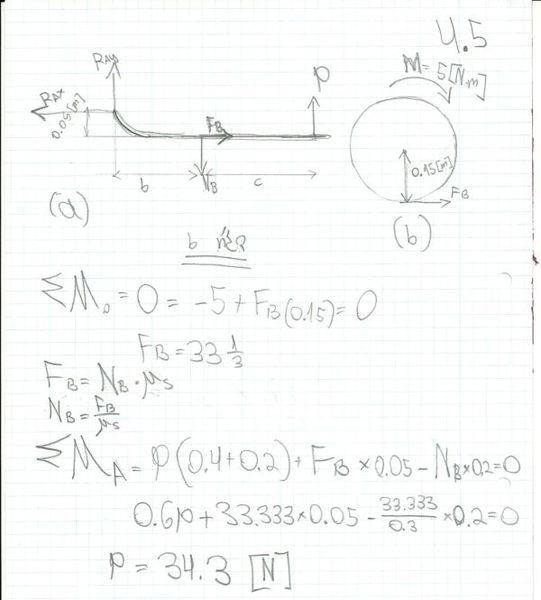 4.5
M=5[N.m]
RAy
P
RAx
0.05[m]
FB
b
NB
c
0.15[m]
FB
(a)
(b)
b
ΣM₀=0=-5+FB(0.15)=0
FB=33 1/3
FB=NB·μs
NB=FB/μs
ΣMA=P(0.4+0.2)+FB×0.05-NB×0.2=0
0.6P+33.333×0.05-33.333/0.3×0.2=0
P=34.3 [N]